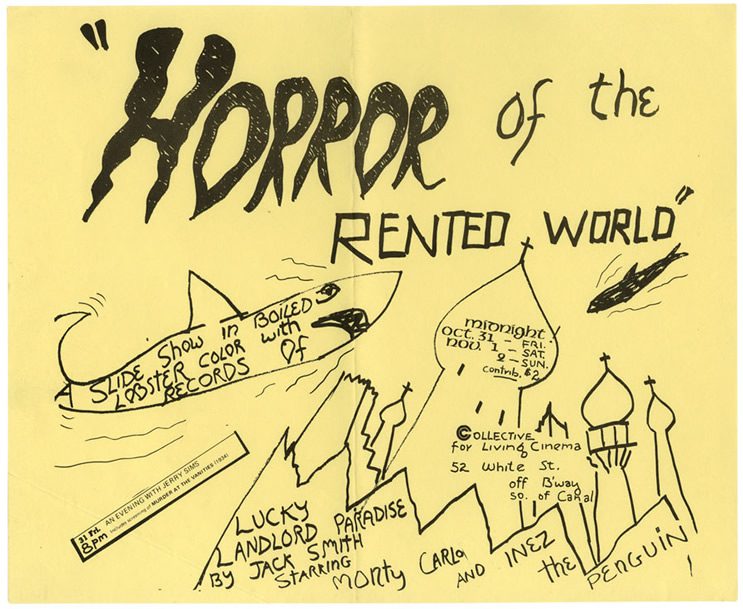 "HORROR of the
RENTED WORLD"
A SLIDE SHOW in BOILED
LOBSTER COLOR with
RECORDS Of
midnight
OCT. 31 - FRI.
NOV. 1 - SAT.
2 - SUN.
contrib. $2
COLLECTIVE
for Living Cinema
52 White St.
off B'way
so. of Canal
31 Fri. AN EVENING WITH JERRY SIMS
8pm Includes screening of MURDER AT THE VANITIES (1934)
LUCKY
LANDLORD PARADISE
BY JACK SMITH
STARRING MONTY CARLO AND INEZ the PENGUIN!